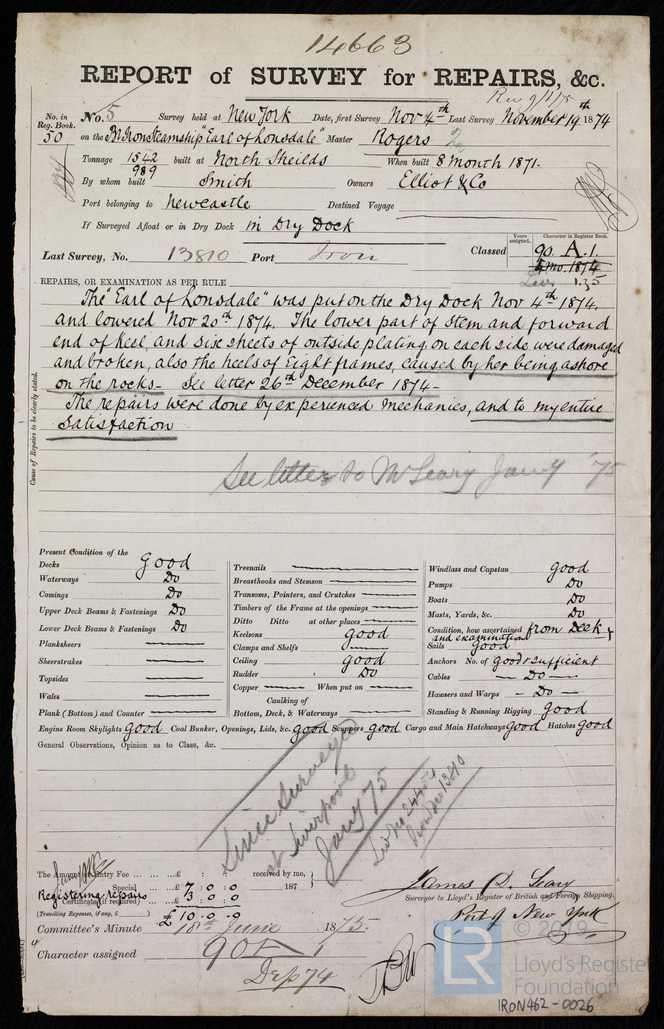 14663
REPORT of SURVEY for REPAIRS, &c.
Rec 9/1/75
No. in Reg. Book. No. 5 Survey held at New York Date, first Survey Nov 4th Last Survey November 19th 1874
50 on the Iron Steamship "Earl of Lonsdale" Master Rogers
Tonnage 1542 built at North Sheilds When built 8 Month 1871.
989
By whom built Smith Owners Elliot & Co
Port belonging to Newcastle Destined Voyage
If Surveyed Afloat or in Dry Dock in Dry Dock
Years assigned. Character in Register Book.
Last Survey, No. 13810 Port Iron Classed 90. A. 1.
4 mo. 1874
1.75
REPAIRS, OR EXAMINATION AS PER RULE
The "Earl of Lonsdale" was put on the Dry Dock Nov 4th 1874,
and lowered Nov 20th 1874. The lower part of Stem and forward
end of Keel, and six sheets of outside plating on each side were damaged
and broken, also the heels of Eight frames, caused by her being ashore
on the rocks— See letter 26th December 1874—
The repairs were done by experienced mechanics, and to my entire
Satisfaction
Cause of Repairs to be clearly stated.
See letter to Mr Leary Jany '75
Present Condition of the
Decks good
Waterways Do
Comings Do
Upper Deck Beams & Fastenings Do
Lower Deck Beams & Fastenings Do
Planksheers
Sheerstrakes
Topsides
Wales
Plank (Bottom) and Counter
Treenails
Breasthooks and Stemson
Transoms, Pointers, and Crutches
Timbers of the Frame at the openings
Ditto Ditto at other places
Keelsons good
Clamps and Shelfs
Ceiling good
Rudder Do
Copper When put on
Caulking of
Bottom, Deck, & Waterways
Windlass and Capstan good
Pumps Do
Boats Do
Masts, Yards, &c. Do
Condition, how ascertained from Deck &
and examination
Sails good
Anchors No. of good & sufficient
Cables — Do —
Hawsers and Warps — Do —
Standing & Running Rigging good
Engine Room Skylights good Coal Bunker, Openings, Lids, &c. good Scuppers good Cargo and Main Hatchways good Hatches good
General Observations, Opinion as to Class, &c.
Since Surveyed
at Liverpool
Jany 75
Liv No 24450
Iron No 13810
The Amount of Entry Fee ... £ : : received by me,
Special ... £ 7 : 0 : 0 187
Registering repairs 3 : 0 : 0
Certificate (if required)
(Travelling Expenses, if any, £ ) £ 10 . 0 . 0
James D. Leary
Surveyor to Lloyd's Register of British and Foreign Shipping.
Port of New York
Committee's Minute 18th June 1875.
Character assigned 90 A 1
Dep 74
© 2019
LR
Lloyd's Register
Foundation
IRON462-0026